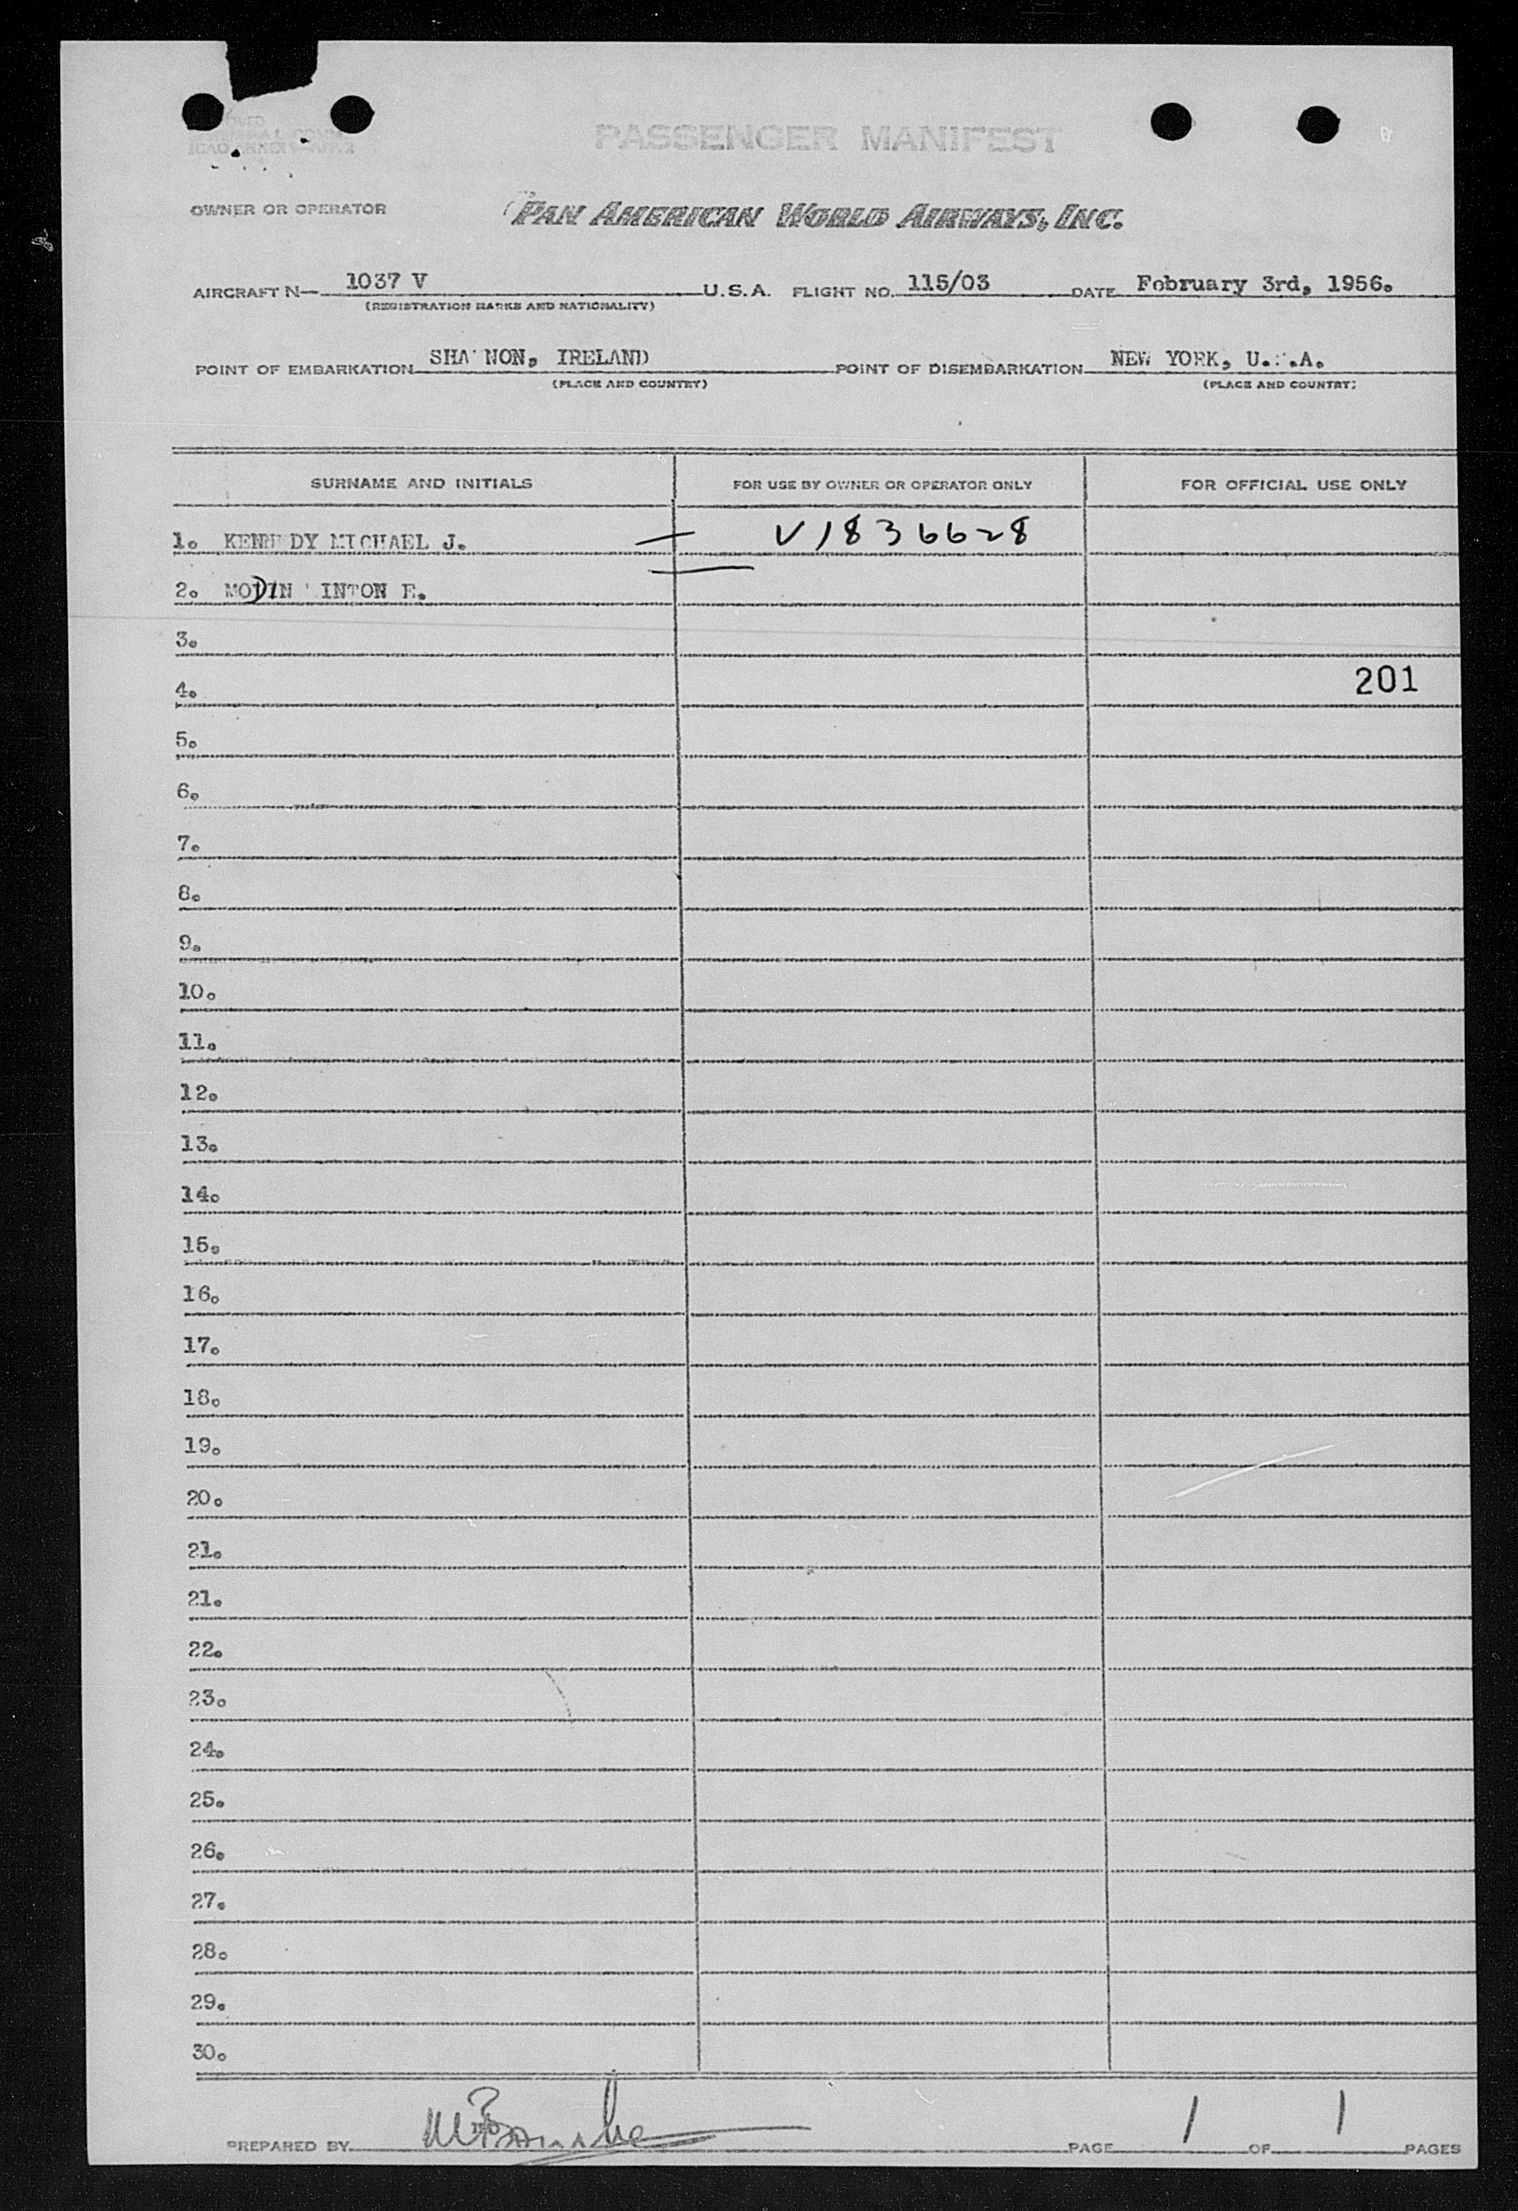 PASSENGER MANIFEST
OWNER OR OPERATOR PAN AMERICAN WORLD AIRWAYS, INC.
AIRCRAFT N— 1037 V U.S.A. FLIGHT NO. 115/03 DATE February 3rd, 1956.
(REGISTRATION MARKS AND NATIONALITY)
POINT OF EMBARKATION SHA NON, IRELAND POINT OF DISEMBARKATION NEW YORK, U. .A.
(PLACE AND COUNTRY) (PLACE AND COUNTRY)
SURNAME AND INITIALS FOR USE BY OWNER OR OPERATOR ONLY FOR OFFICIAL USE ONLY
1. KENNEDY MICHAEL J. — V1836628
2. MODIN INTON E.
3.
4. 201
5.
6.
7.
8.
9.
10.
11.
12.
13.
14.
15.
16.
17.
18.
19.
20.
21.
21.
22.
23.
24.
25.
26.
27.
28.
29.
30.
PREPARED BY PAGE 1 OF 1 PAGES